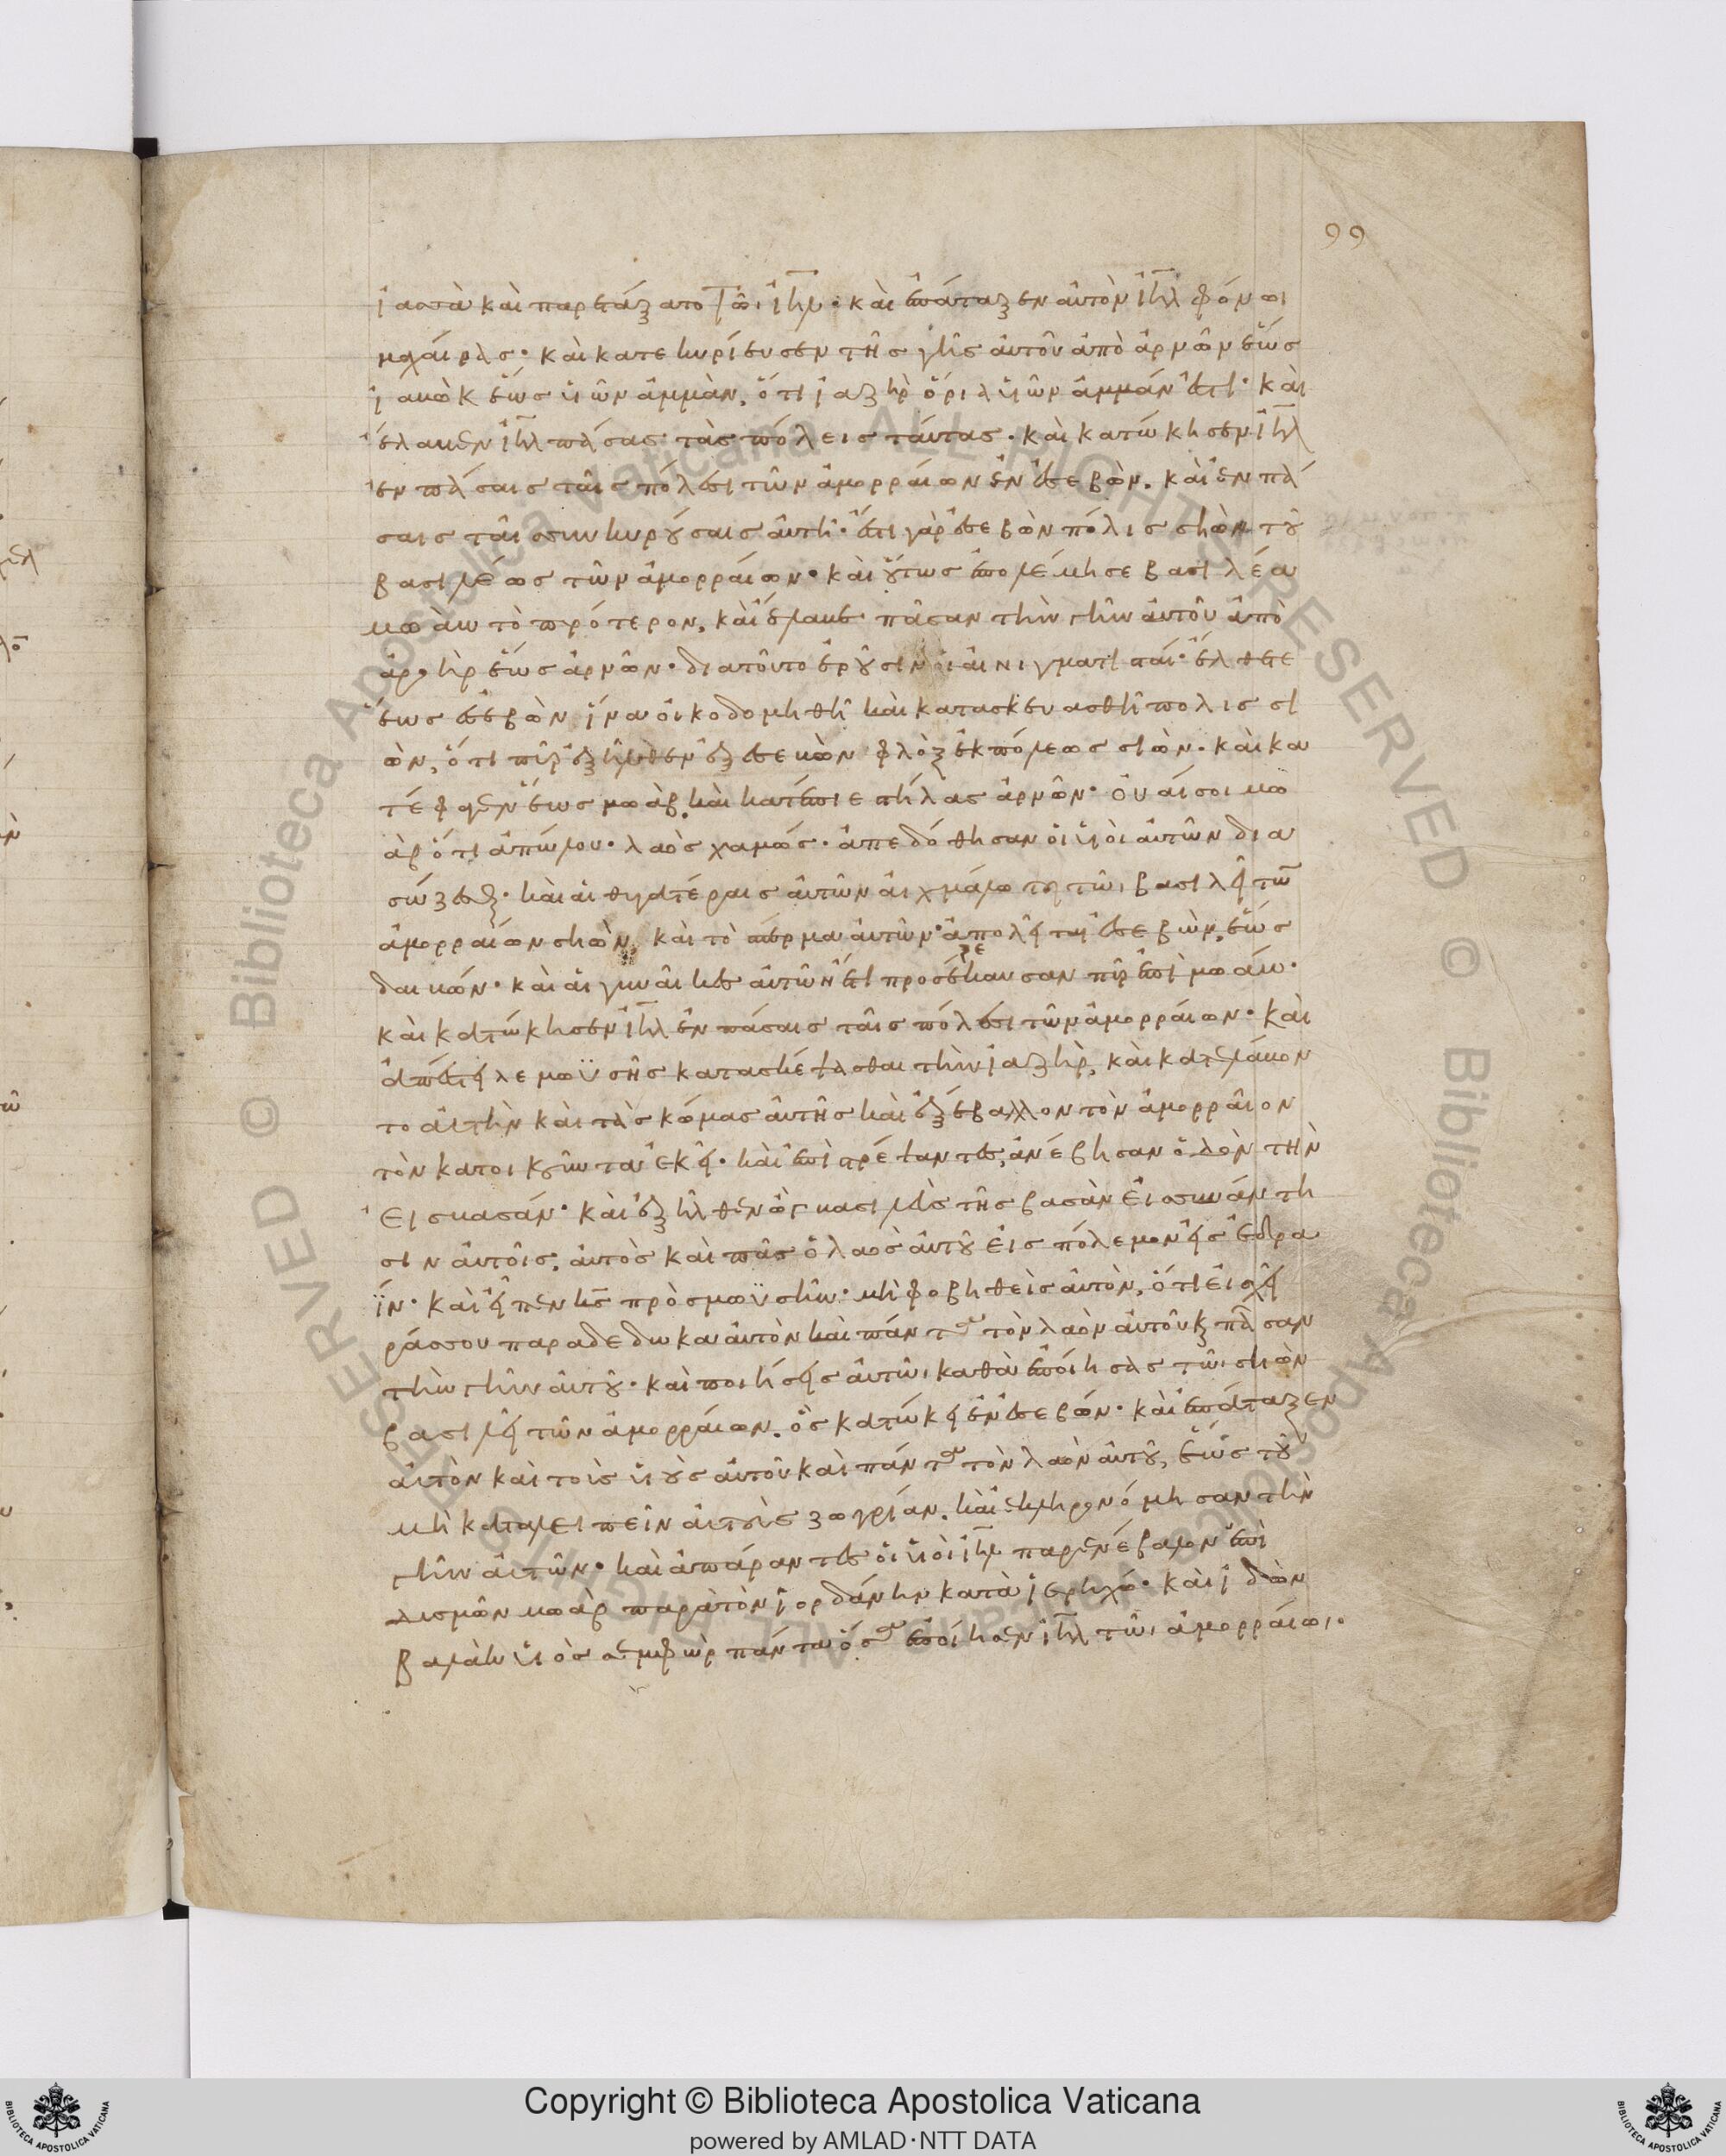 99
ἰασσὰ καὶ παρετάξατο τῶι ἰηλ· καὶ ἐπάταξεν αὐτὸν ἰηλ φόνωι
μαχαίρας· καὶ κατεκυρίευσεν τῆς γῆς αὐτοῦ ἀπὸ ἀρνῶν ἕως
ἰακὼκ ἕως υἱῶν ἀμμὰν, ὅτι ἰαζὴρ ὅρια υἱῶν ἀμμάν ἐστι· καὶ
ἔλαβεν ἰηλ πάσας τὰς πόλεις ταύτας· καὶ κατώκησεν ἰηλ
ἐν πάσαις ταῖς πόλεσι τῶν ἀμορραίων ἐν ἐσεβὼν. καὶ ἐν πά
σαις ταῖς συνκυρούσαις αὐτῆι· ἔστι γὰρ ἐσεβὼν πόλις σηὼν τοῦ
βασιλέως τῶν ἀμορραίων· καὶ οὕτως ἐπολέμησε βασιλέα
μωὰβ τὸ πρότερον, καὶ ἔλαβε πᾶσαν τὴν γῆν αὐτοῦ ἀπὸ
ἀροὴρ ἕως ἀρνῶν· διατοῦτο ἐροῦσιν οἱ αἰνιγματισταί· ἔλθετε
ἕως ἐσεβὼν ἵνα οἰκοδομηθῆ καὶ κατασκευασθῆ πόλις σι
ὼν, ὅτι πῦρ ἐξῆλθεν ἐξ ἐσεβὼν φλὸξ ἐκ πόλεως σιὼν· καὶ κα
τέφαγεν ἕως μωὰβ καὶ κατέπιε στήλας ἀρνῶν· οὐαί σοι μω
ὰβ ὅτι ἀπώλου· λαὸς χαμώς· ἀπεδόθησαν οἱ υἱοὶ αὐτῶν δια
σώζεσθαι· καὶ αἱ θυγατέραις αὐτῶν αἰχμάλωτοι τῶι βασιλεῖ τῶν
ἀμορραίων σηὼν, καὶ τὸ σπέρμα αὐτῶν· ἀπολεῖται ἐσεβὼν, ἕως
δαιβών· καὶ αἱ γυναῖκες αὐτῶν ἔτι προσεξέκαυσαν πῦρ ἐπὶ μωάβ·
καὶ κατώκησεν ἰηλ ἐν πάσαις ταῖς πόλεσι τῶν ἀμορραίων· καὶ
ἀπέστειλε μωϋσῆς κατασκέψασθαι τὴν ἰαζὴρ, καὶ κατελάβον
το αὐτὴν καὶ τὰς κώμας αὐτῆς καὶ ἐξέβαλλον τὸν ἀμορραῖον
τὸν κατοικοῦντα ἐκεῖ· καὶ ἐπιστρέψαντες, ἀνέβησαν ὁδὸν τὴν
εἰς βασάν· καὶ ἐξῆλθεν ὼγ βασιλεὺς τῆς βασὰν εἰς συνάντη
σιν αὐτοῖς, αὐτὸς καὶ πᾶς ὁ λαὸς αὐτοῦ εἰς πόλεμον εἰς ἐδρα
ΐν· καὶ εἶπεν κς πρὸς μωϋσῆν· μὴ φοβηθεὶς αὐτὸν, ὅτι εἰς χεῖ
ράς σου παραδέδωκα αὐτὸν καὶ πάντα τὸν λαὸν αὐτοῦ κ πᾶσαν
τὴν γῆν αὐτοῦ· καὶ ποιήσεις αὐτῶι καθὰ ἐποίησας τῶι σηὼν
βασιλεῖ τῶν ἀμορραίων, ὃς κατώκει ἐν ἐσεβών· καὶ ἐπάταξεν
αὐτὸν καὶ τοὺς υἱοὺς αὐτοῦ καὶ πάντα τὸν λαὸν αὐτοῦ, ἕως τοῦ
μὴ καταλειπεῖν αὐτοῖς ζωγρίαν. καὶ ἐκληρονόμησαν τὴν
γῆν αὐτῶν· καὶ ἀπάραντες οἱ υἱοὶ ἰηλ παρενέβαλον ἐπὶ
δυσμῶν μωὰβ παρὰ τὸν ἰορδάνην κατὰ ἰεριχώ· καὶ ἰδὼν
βαλὰκ υἱὸς σεπφὼρ πάντα ὅσα ἐποίησεν ἰηλ τῶι ἀμορραίωι.
Copyright © Biblioteca Apostolica Vaticana
powered by AMLAD·NTT DATA